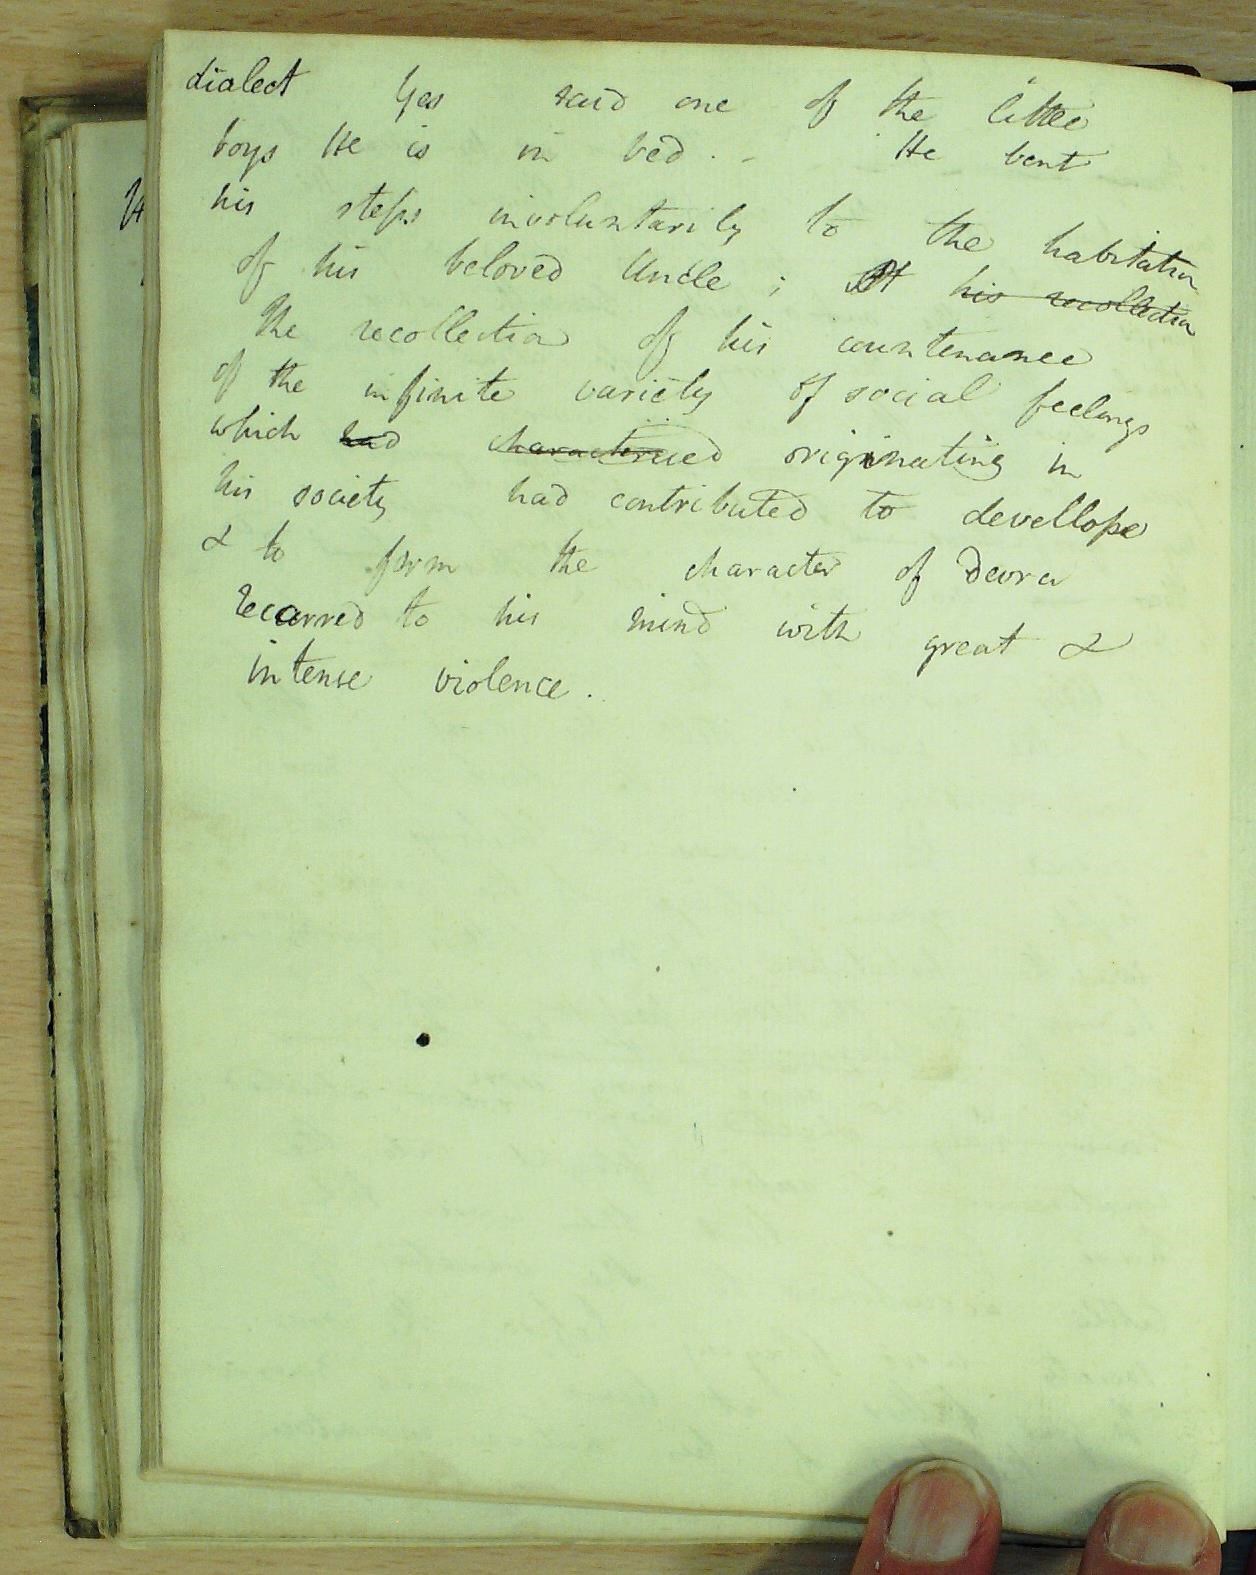 dialect Yes said one of the little
boys He is in bed . - He bent
his steps involuntarily to the habitation
of his beloved Uncle ; At his recollection
The recollection of his countenance
of the infinite variety of social feelings
which had characterised originating in
his society had contributed to devellope
& to form the character of Devra
Recurred to his mind with great &
intense violence .